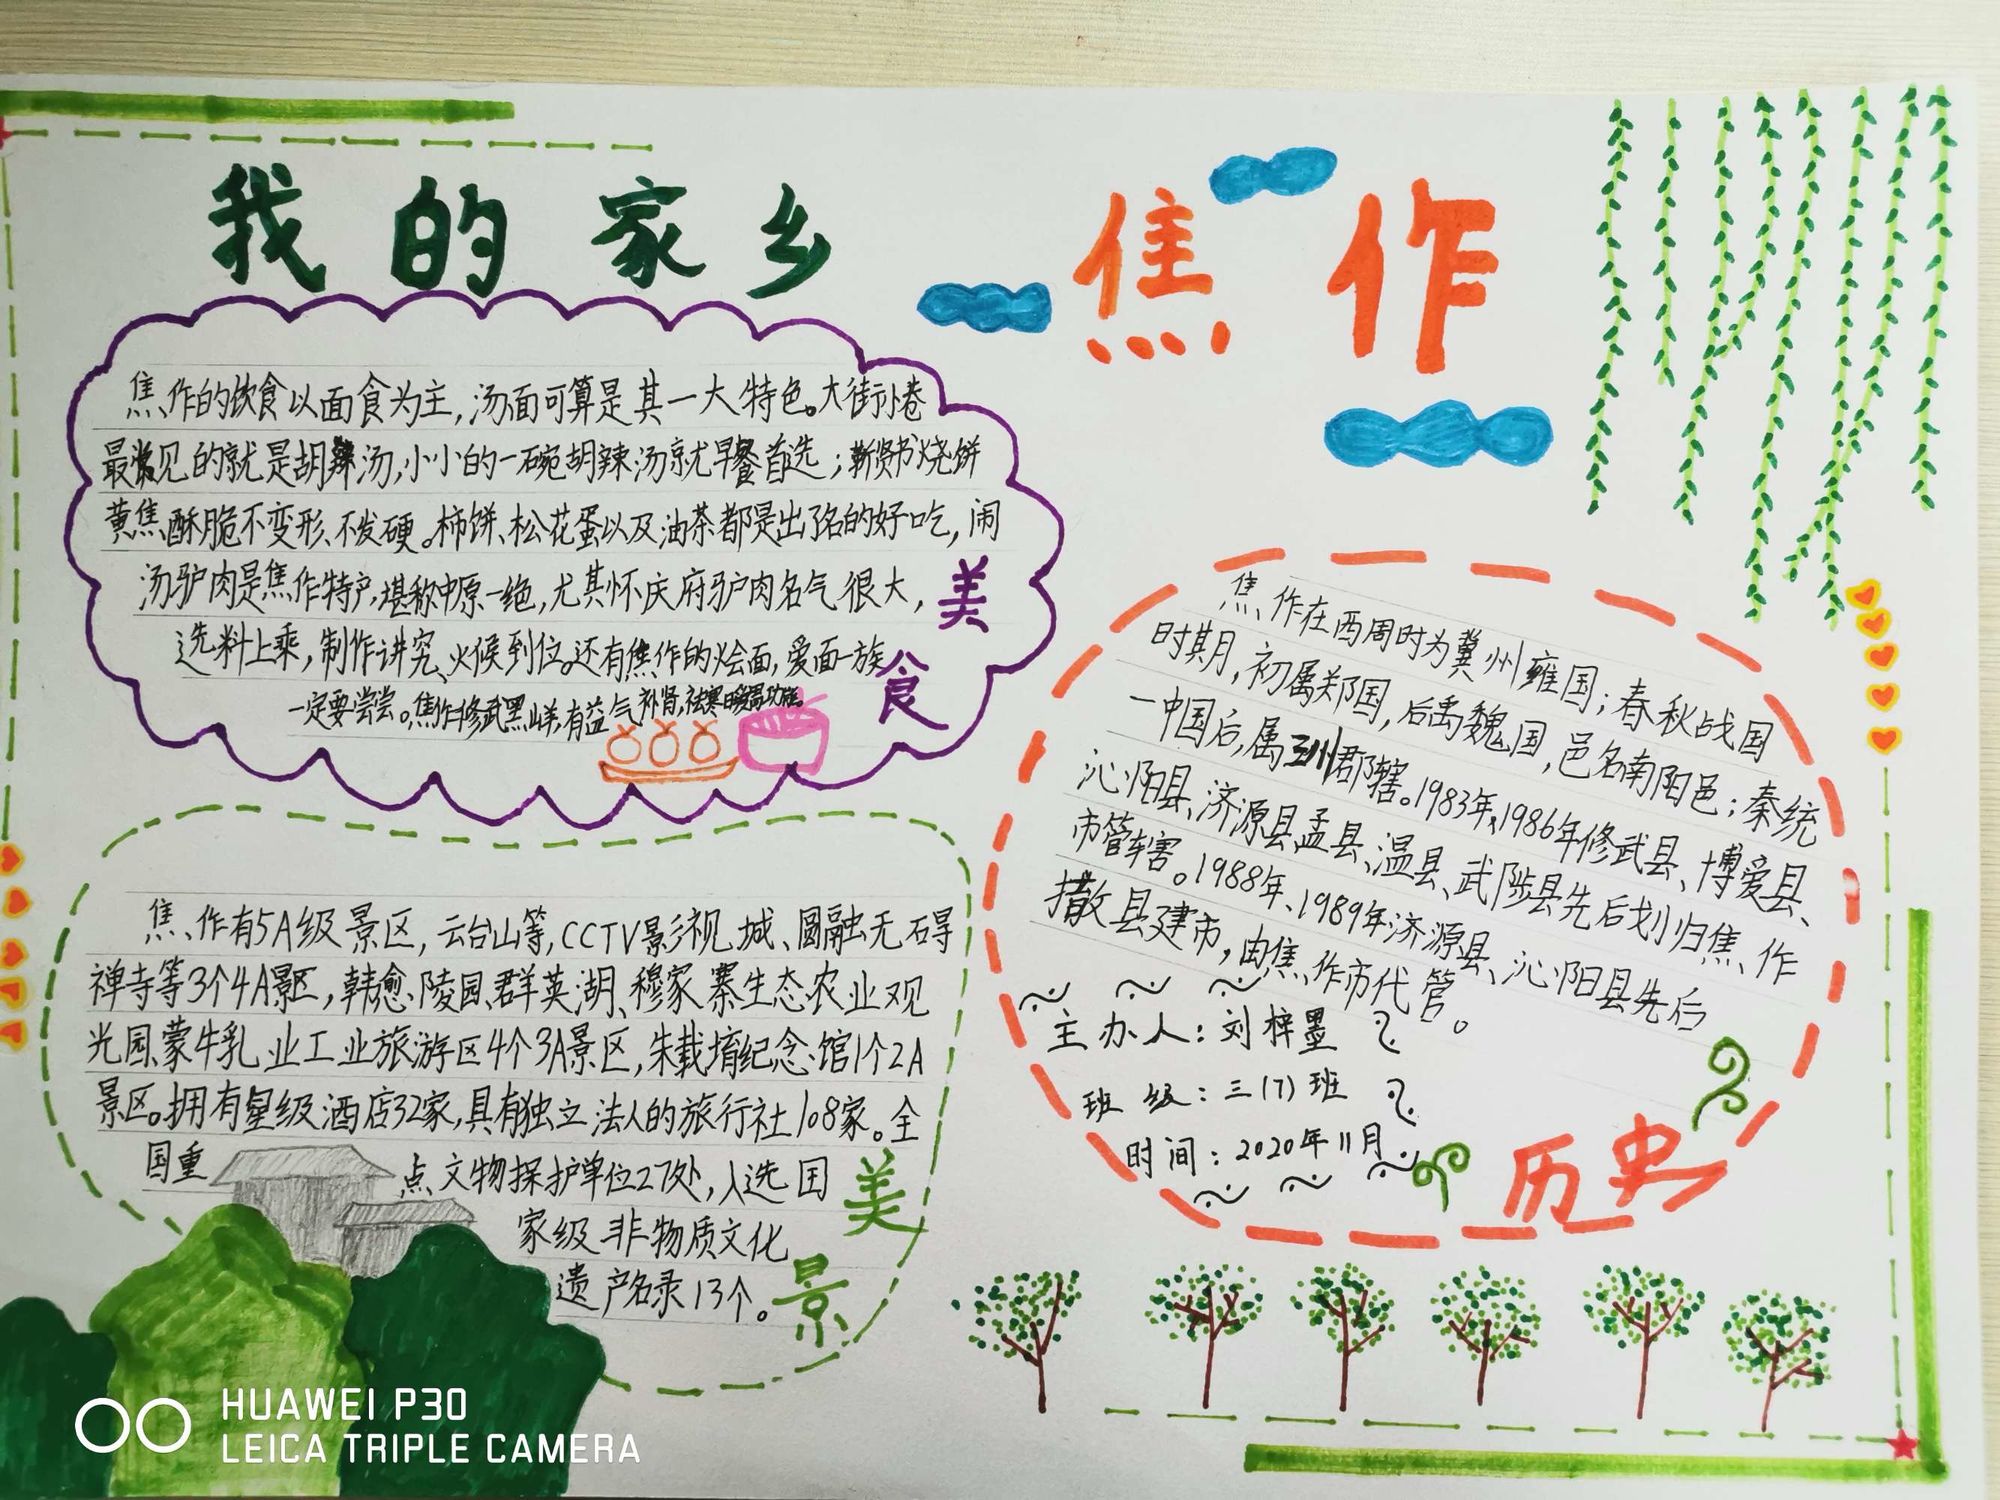 我的家乡
焦作
焦作的饮食以面食为主,汤面可算是其一大特色。大街小巷
最常见的就是胡辣汤,小小的一碗胡辣汤就早餐首选;靳贤书烧饼
黄焦酥脆不变形、不发硬。柿饼、松花蛋以及油茶都是出了名的好吃,闹
汤驴肉是焦作特产,堪称中原一绝,尤其怀庆府驴肉名气很大,
选料上乘,制作讲究、火候到位。还有焦作的烩面,爱面一族
一定要尝尝。焦作修武黑山羊,有益气补肾,祛寒暖胃功能。
美食
焦作有5A级景区,云台山等,CCTV影视城、圆融无碍
禅寺等3个4A景区,韩愈陵园、群英湖、穆家寨生态农业观
光园、蒙牛乳业工业旅游区4个3A景区,朱载堉纪念馆1个2A
景区。拥有星级酒店32家,具有独立法人的旅行社108家。全
国重点文物保护单位27处,入选国
家级非物质文化
遗产名录13个。
美景
焦作在西周时为冀州雍国;春秋战国
时期,初属郑国,后  魏国,邑名南阳邑;秦统
一中国后,属三川郡辖。1983年、1986年修武县、博爱县、
沁阳县、济源县、孟县、温县、武陟县先后划归焦作
市管辖。1988年、1989年济源县、沁阳县先后
撤县建市,由焦作市代管。
主办人:刘梓墨
班级:三(7)班
时间:2020年11月
历史
HUAWEI P30
LEICA TRIPLE CAMERA